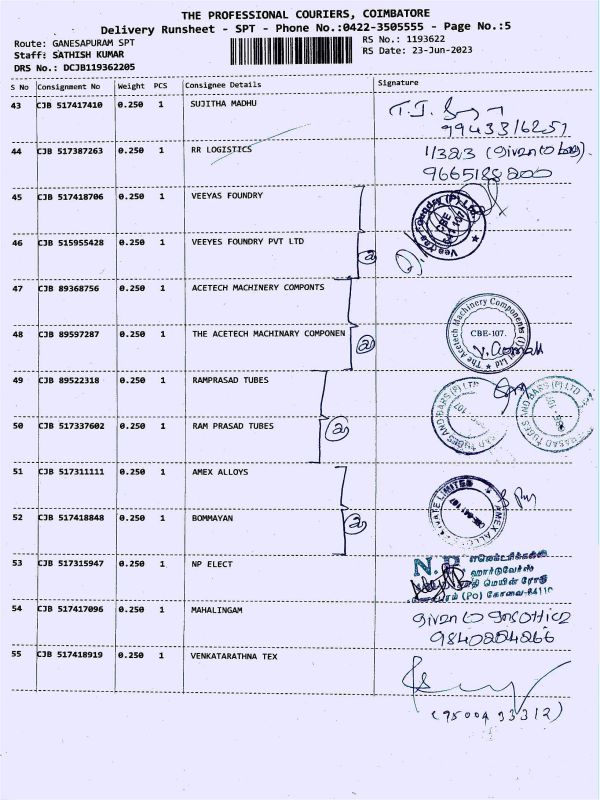 THE PROFESSIONAL COURIERS, COIMBATORE
Delivery Runsheet - SPT - Phone No.:0422-3505555 - Page No.:5
Route: GANESAPURAM SPT
RS No.: 1193622
Staff: SATHISH KUMAR
RS Date: 23-Jun-2023
DRS No.: DCJB119362205
S No Consignment No Weight PCS Consignee Details Signature
43 CJB 517417410 0.250 1 SUJITHA MADHU
9943316251
44 CJB 517387263 0.250 1 RR LOGISTICS
9665188200
45 CJB 517418706 0.250 1 VEEYAS FOUNDRY
46 CJB 515955428 0.250 1 VEEYES FOUNDRY PVT LTD
47 CJB 89368756 0.250 1 ACETECH MACHINERY COMPONTS
48 CJB 89597287 0.250 1 THE ACETECH MACHINARY COMPONEN
The Acetech Machinery Components (I) (P) Ltd
CBE-107.
49 CJB 89522318 0.250 1 RAMPRASAD TUBES
50 CJB 517337602 0.250 1 RAM PRASAD TUBES
51 CJB 517311111 0.250 1 AMEX ALLOYS
52 CJB 517418848 0.250 1 BOMMAYAN
53 CJB 517315947 0.250 1 NP ELECT
N.P எலெக்ட்ரிக்கல்ஸ்
ஹார்டுவேர்ஸ்
மெயின் ரோடு
(PO) கோவை-64110
54 CJB 517417096 0.250 1 MAHALINGAM
Given to
9840204266
55 CJB 517418919 0.250 1 VENKATARATHNA TEX
(9500433312)